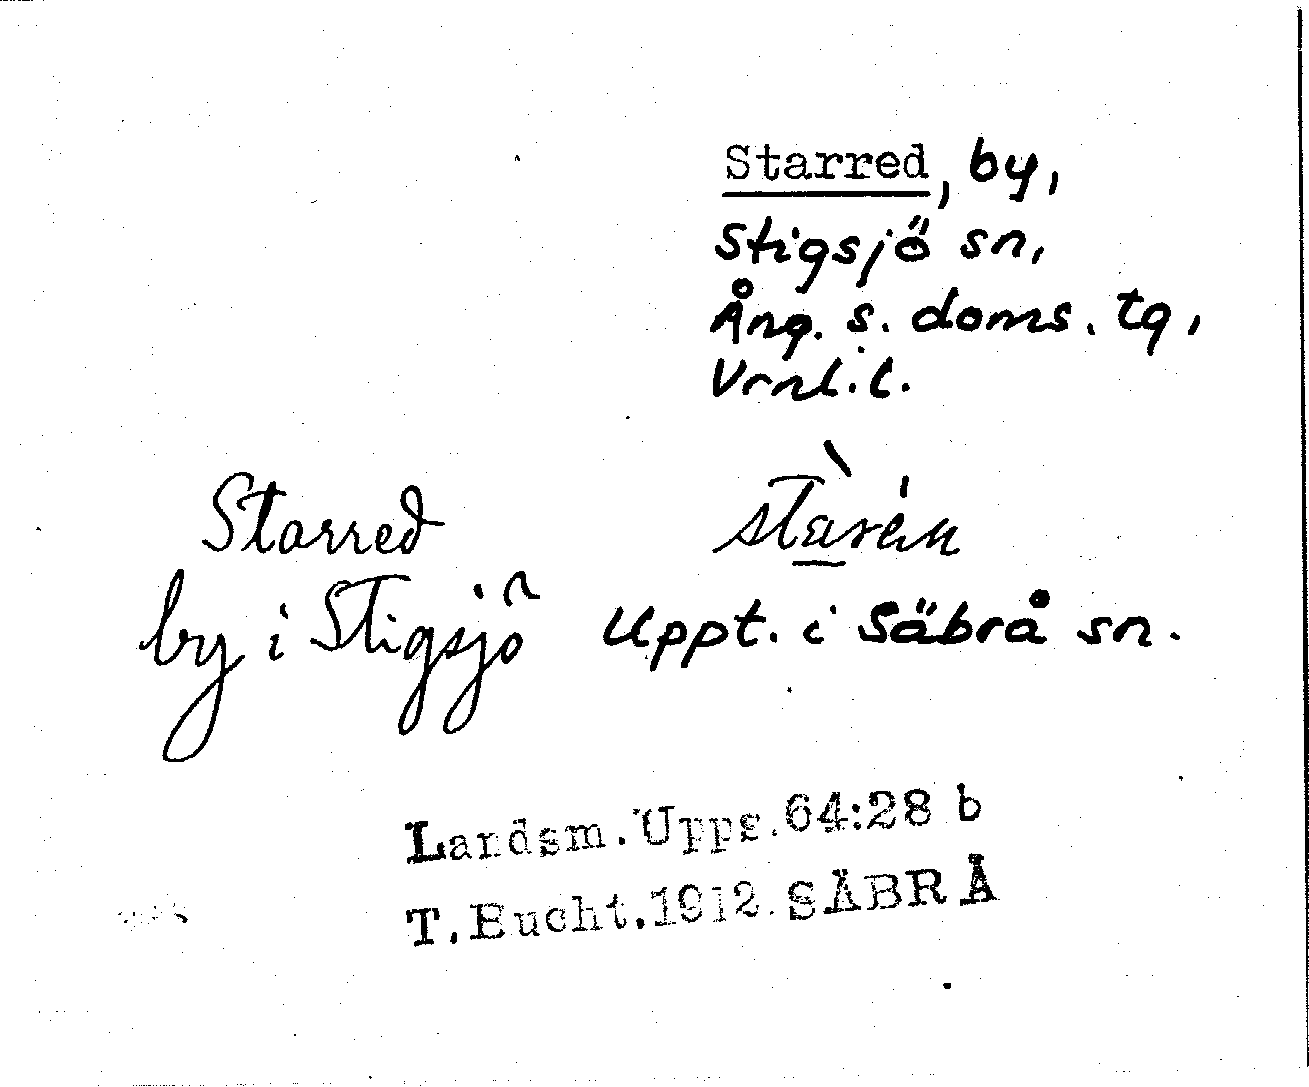 Starred, by,
Stigsjö sn,
Ång. s. doms. tg,
Vrnl. l.
Starred
by i Stigsjö
Uppt. i Säbrå sn.
Landsm. Upps. 64:28 b
T. Bucht. 1912. SÄBRÅ